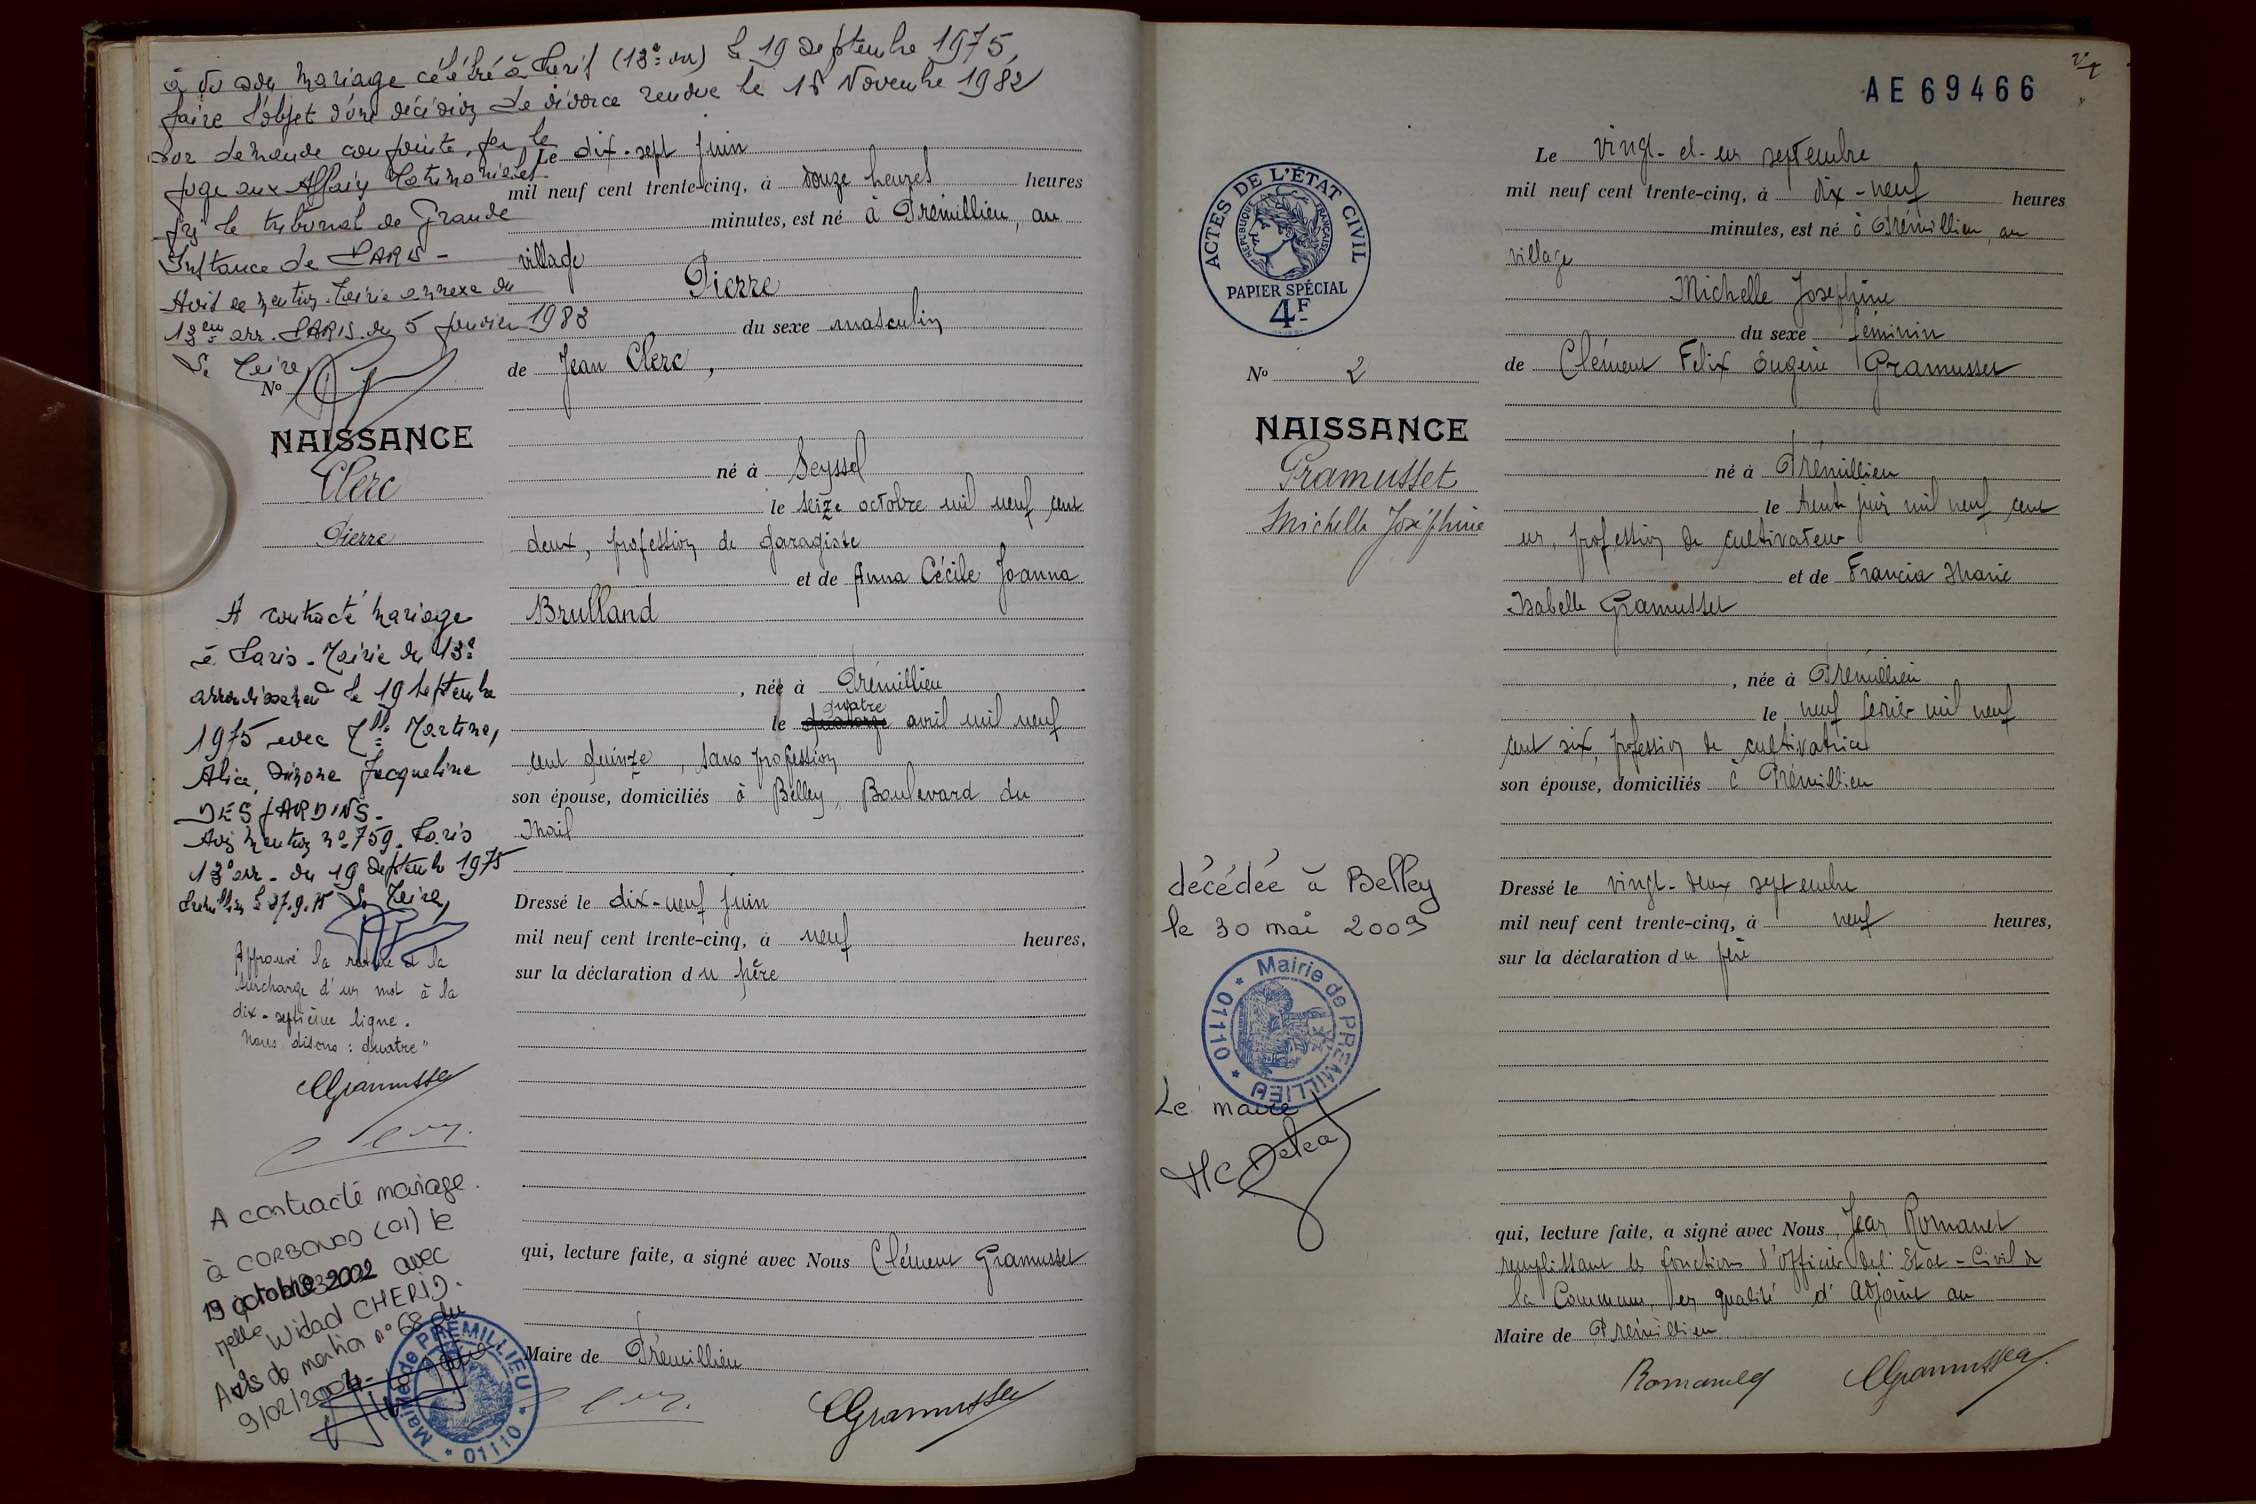 a vu son mariage célébré à Paris (13e arr) le 19 septembre 1975,
faire l'objet d'une décision de divorce rendue le 18 Novembre 1982
sur demande conjointe, par le
juge aux Affaires Matrimoniales
près le tribunal de Grande
Instance de PARIS -
Avis de mention Mairie annexe du
13em arr. PARIS du 5 janvier 1983
Le Maire,
No
NAISSANCE
Clerc
Pierre
A contracté mariage
à Paris - Mairie du 13e
arrondissement le 19 septembre
1975 avec Mlle Martine,
Alice, Simone Jacqueline
DESJARDINS -
Avis mention no 759. Paris
13e arr - du 19 septembre 1975
Prémillieu le 27.9.75 Le Maire,
Approuvé la rature et la
surcharge d'un mot à la
dix-septième ligne.
Nous disons : quatre"
CGramusset
Clerc
A contracté mariage
à CORBONOD (01) le
19 octobre 2002 avec
Melle Widad CHERID.
Avis de mention no 68 du
9/02/2004
Mairie de PREMILLIEU
* 01110 *
Le dix-sept juin
mil neuf cent trente-cinq, à douze heures heures
minutes, est né à Prémillieu, au
village
Pierre
du sexe masculin
de Jean Clerc,
né à Seyssel
le seize octobre mil neuf cent
deux, profession de garagiste
et de Anna Cécile Joanna
Brulland
, née à Prémillieu
quatre
le quatorze avril mil neuf
cent quinze, sans profession
son épouse, domiciliés à Belley, Boulevard du
Mail
Dressé le dix-neuf juin
mil neuf cent trente-cinq, à neuf heures,
sur la déclaration du père
qui, lecture faite, a signé avec Nous Clément Gramusset
Maire de Prémillieu
Clerc
CGramusset
AE 69466
ACTES DE L'ÉTAT CIVIL
REPUBLIQUE FRANÇAISE
PAPIER SPÉCIAL
4F
No 2
NAISSANCE
Gramusset
Michelle Joséphine
décédée à Belley
le 30 mai 2009
Mairie de PREMILLIEU
* 01110 *
Le maire
Le vingt-et-un septembre
mil neuf cent trente-cinq, à dix-neuf heures
minutes, est né à Prémillieu, au
village
Michelle Josephine
du sexe féminin
de Clément Felix Eugène Gramusset
né à Prémillieu
le trente juin mil neuf cent
un, profession de cultivateur
et de Francia Marie
Isabelle Gramusset
, née à Prémillieu
le neuf février mil neuf
cent six, profession de cultivatrice
son épouse, domiciliés à Prémillieu
Dressé le vingt-deux septembre
mil neuf cent trente-cinq, à neuf heures,
sur la déclaration du père
qui, lecture faite, a signé avec Nous, Jean Romanet
remplissant les fonctions d'officier de l'Etat-Civil de
la Commune, en qualité d'adjoint au
Maire de Prémillieu
Romanet
CGramusset